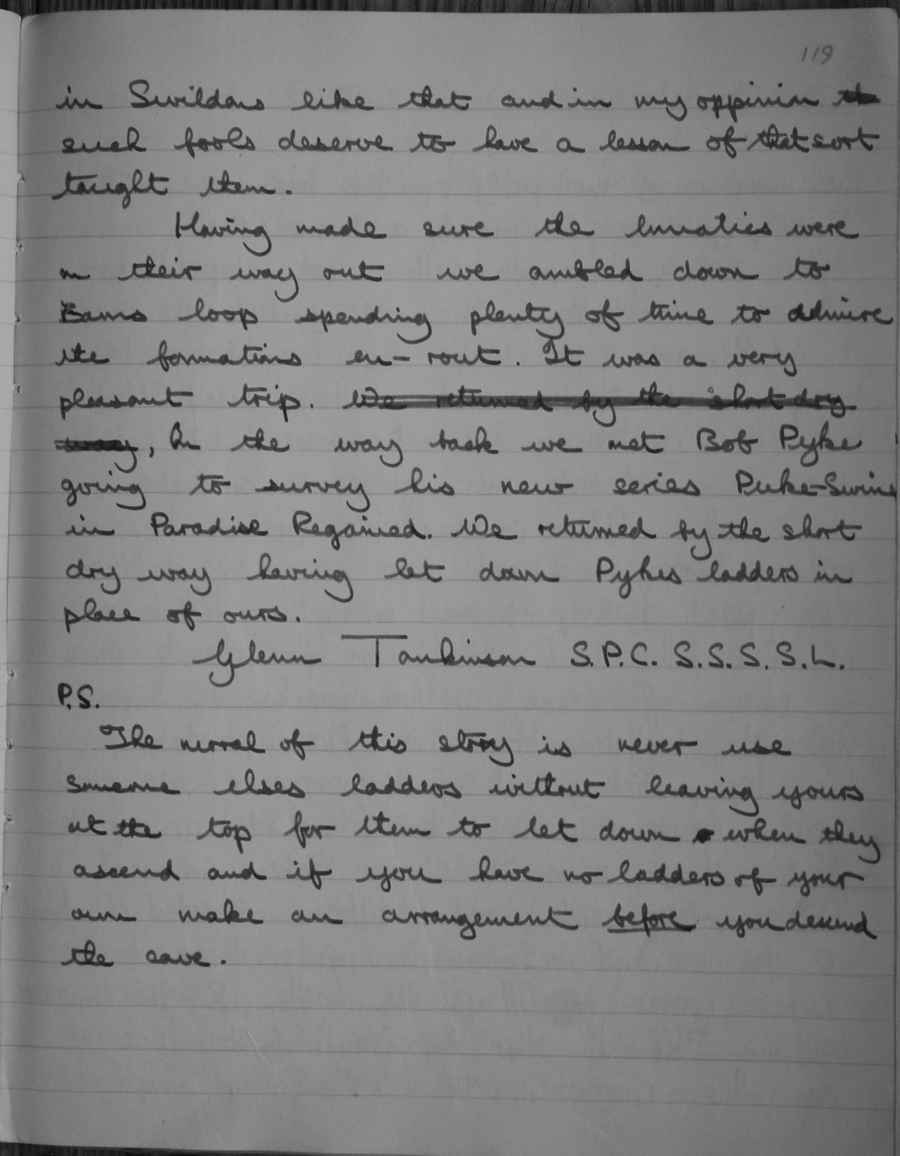 119
in Swildons like that and in my oppinion the
such fools deserve to have a lesson of that sort
taught them.
Having made sure the lunatics were
on their way out we ambled down to
Barns loop spending plenty of time to admire
the formations en-rout. It was a very
pleasant trip. We returned by the short dry
way, On the way back we met Bob Pyke
going to survey his new series Puke-Swine
in Paradise Regained. We returned by the short
dry way having let down Pykes ladders in
place of ours.
Glenn Tomkinson S.P.C. S.S.S.S.L.
P.S.
The moral of this story is never use
someone elses ladders without leaving yours
at the top for them to let down when they
ascend and if you have no ladders of your
own make an arrangement before you descend
the cave.